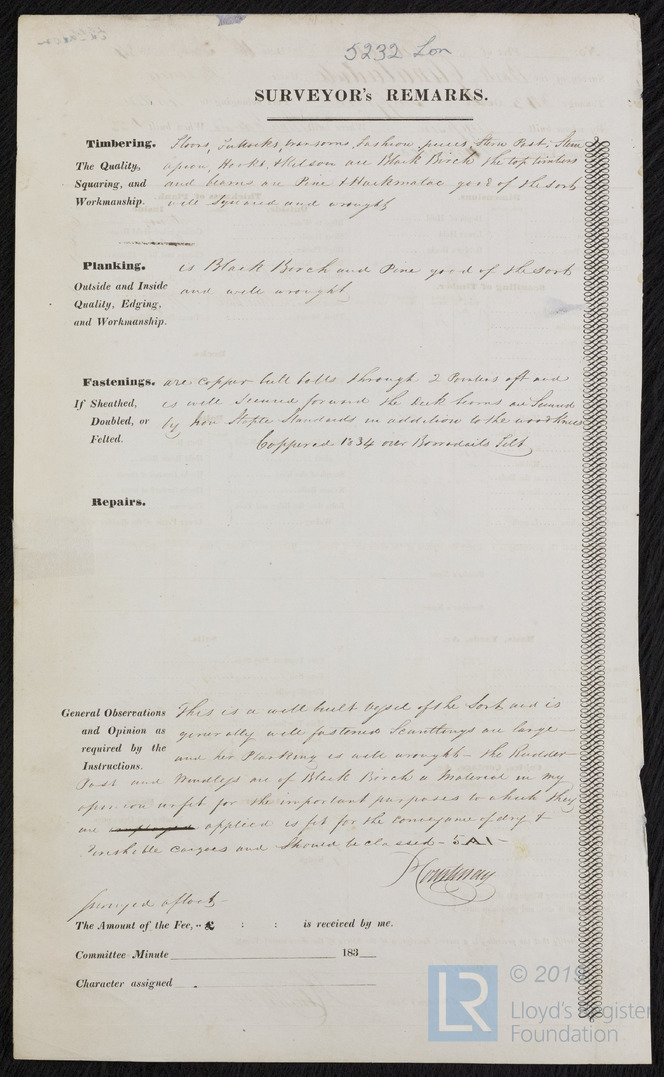 5232 Lon
SURVEYOR's REMARKS.
Timbering.
The Quality,
Squaring, and
Workmanship.
Floors, Futtocks, transoms, fashion pieces, Stern Post, Stem
apron, Hooks, & Kelson are Black Birch the top timbers
and beams are Pine & Hackmatac good of the sort
well squared and wrought
Planking.
Outside and Inside
Quality, Edging,
and Workmanship.
is Black Birch and Pine good of the sort
and well wrought
Fastenings.
If Sheathed,
Doubled, or
Felted.
are copper butt bolts through 2 Pointers aft and
is well secured forward the deck beams are Secured
by Iron Staple Standards in addition to the wood knees
Coppered 1834 over Borrodails Felt
Repairs.
General Observations
and Opinion as
required by the
Instructions.
This is a well built vessel of the Sort and is
generally well fastened Scantlings are large
and her Planking is well wrought - the Rudder
Post and Windlass are of Black Birch a material in my
opinion unfit for the important purposes to which they
are applied is fit for the conveyance of dry &
Perishable cargoes and should be classed - 5 A1 -
P Courtenay
Surveyed afloat
The Amount of the Fee, .. £ : : is received by me.
Committee Minute 183
Character assigned
LR © 2019
Lloyd's Register
Foundation